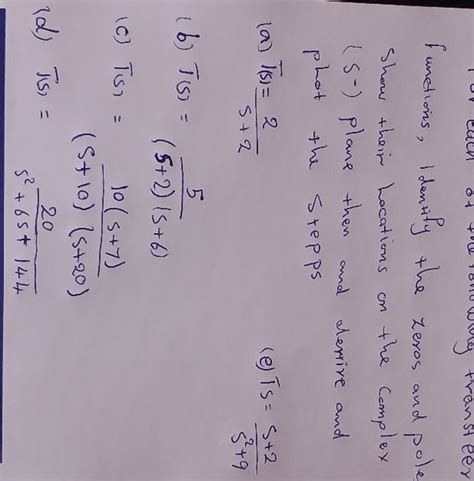 For each of the following transfer
functions, Identify the zeros and pole
Show their Locations on the Complex
(S-) plane then and derive and
plot the Stepps
(a) T(s) = 2 / S+2
(b) T(s) = 5 / (S+2)(S+6)
(c) T(s) = 10(S+7) / (S+10)(S+20)
(d) T(s) = 20 / S²+6S+144
(e) Ts = S+2 / S²+9